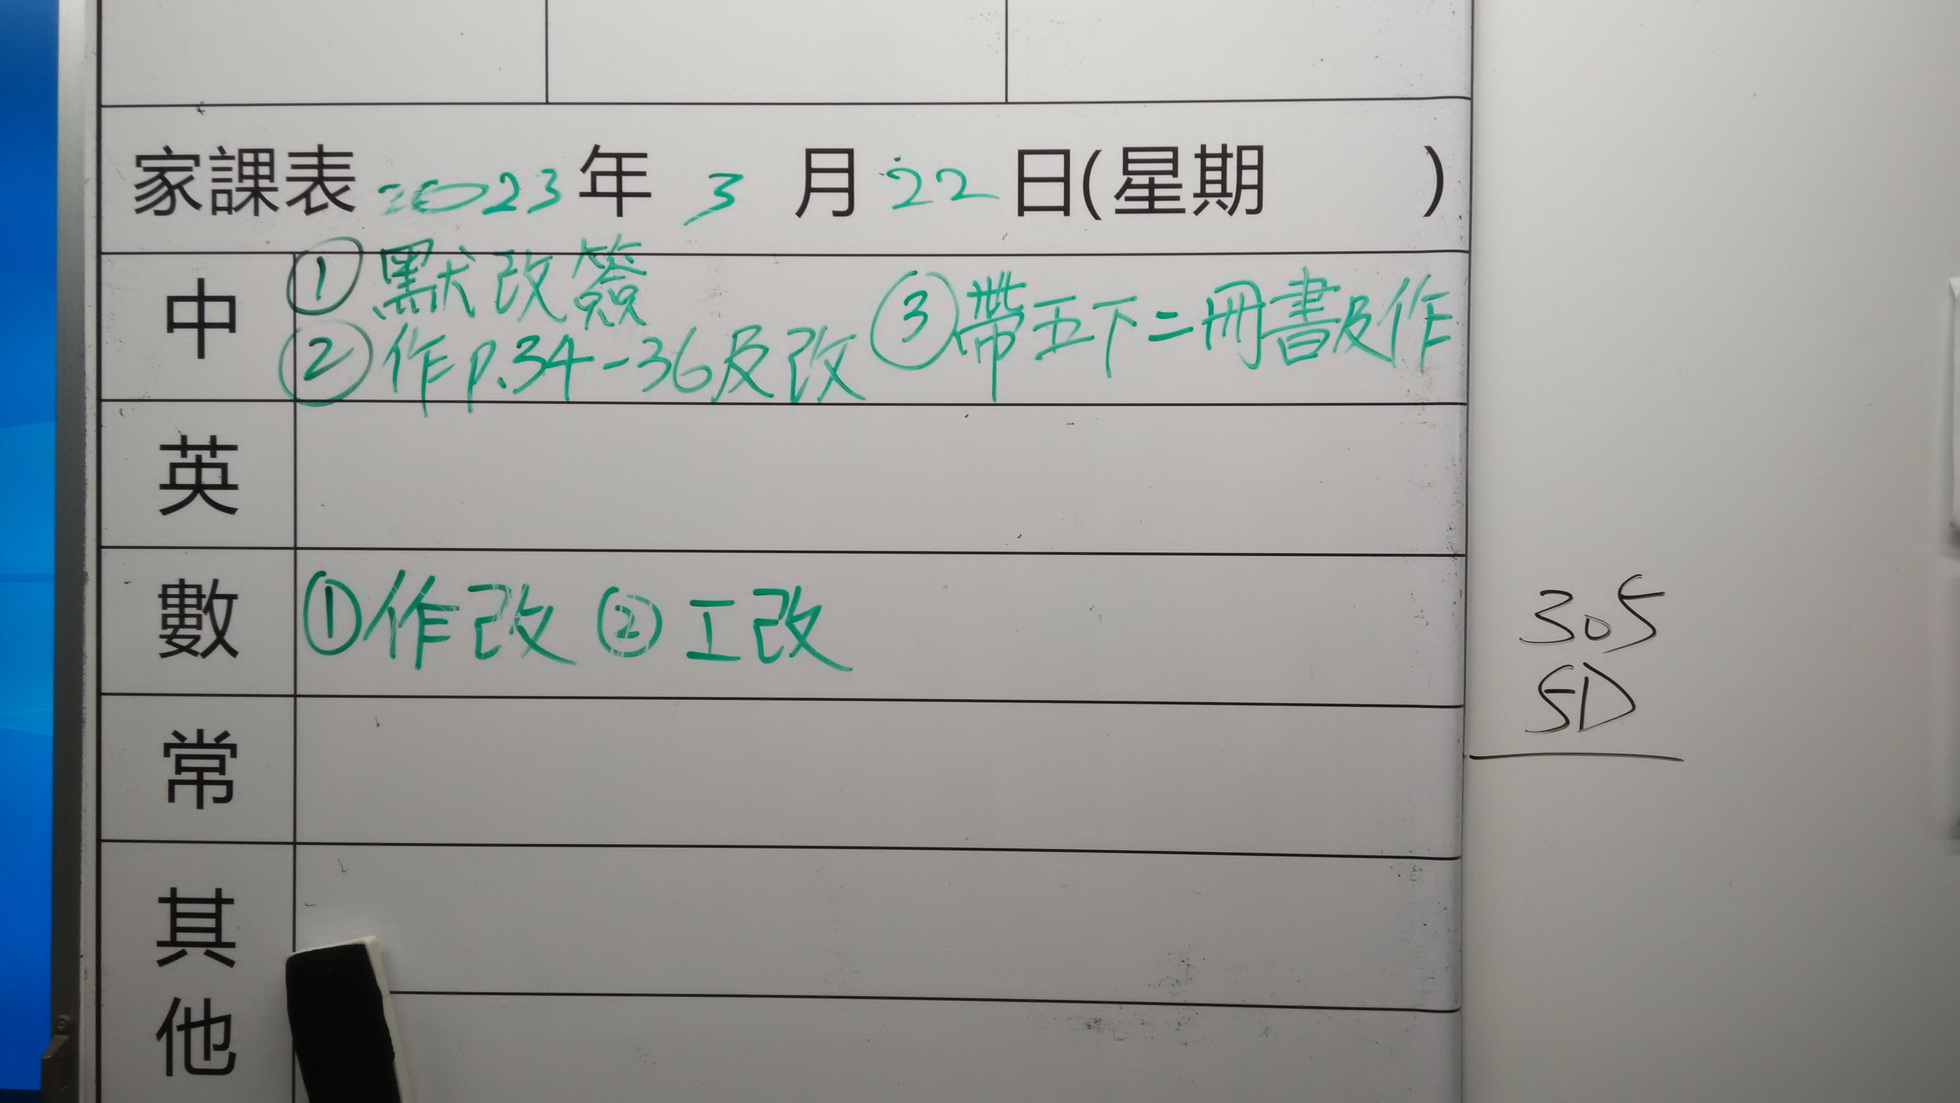 家課表 2023年 3 月 22 日(星期 )
中 ①默改簽
②作p.34-36及改 ③帶五下二冊書及作
英
數 ①作改 ②工改
常
其他
305
5D